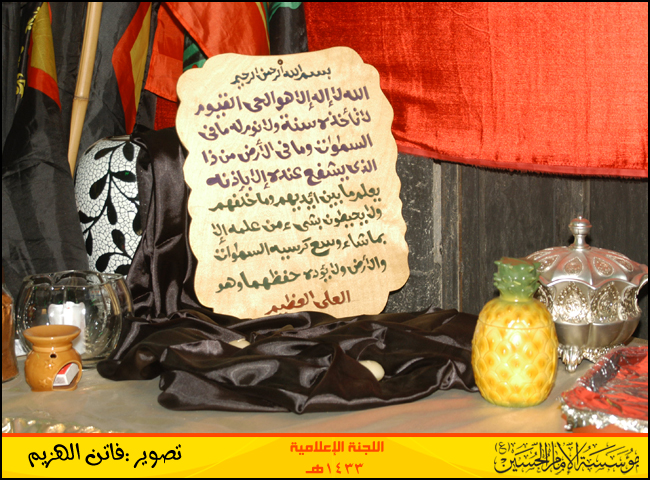 بسم الله الرحمن الرحيم
الله لا إله إلا هو الحي القيوم
لا تأخذه سنة ولا نوم له ما في
السموات وما في الأرض من ذا
الذي يشفع عنده إلا بإذنه
يعلم ما بين أيديهم وما خلفهم
ولا يحيطون بشيء من علمه إلا
بما شاء وسع كرسيه السموات
والأرض ولا يؤده حفظهما وهو
العلي العظيم
مؤسسة الإمام الحسين (ع)
اللجنة الإعلامية
١٤٣٣هـ
تصوير :فاتن الهزيم